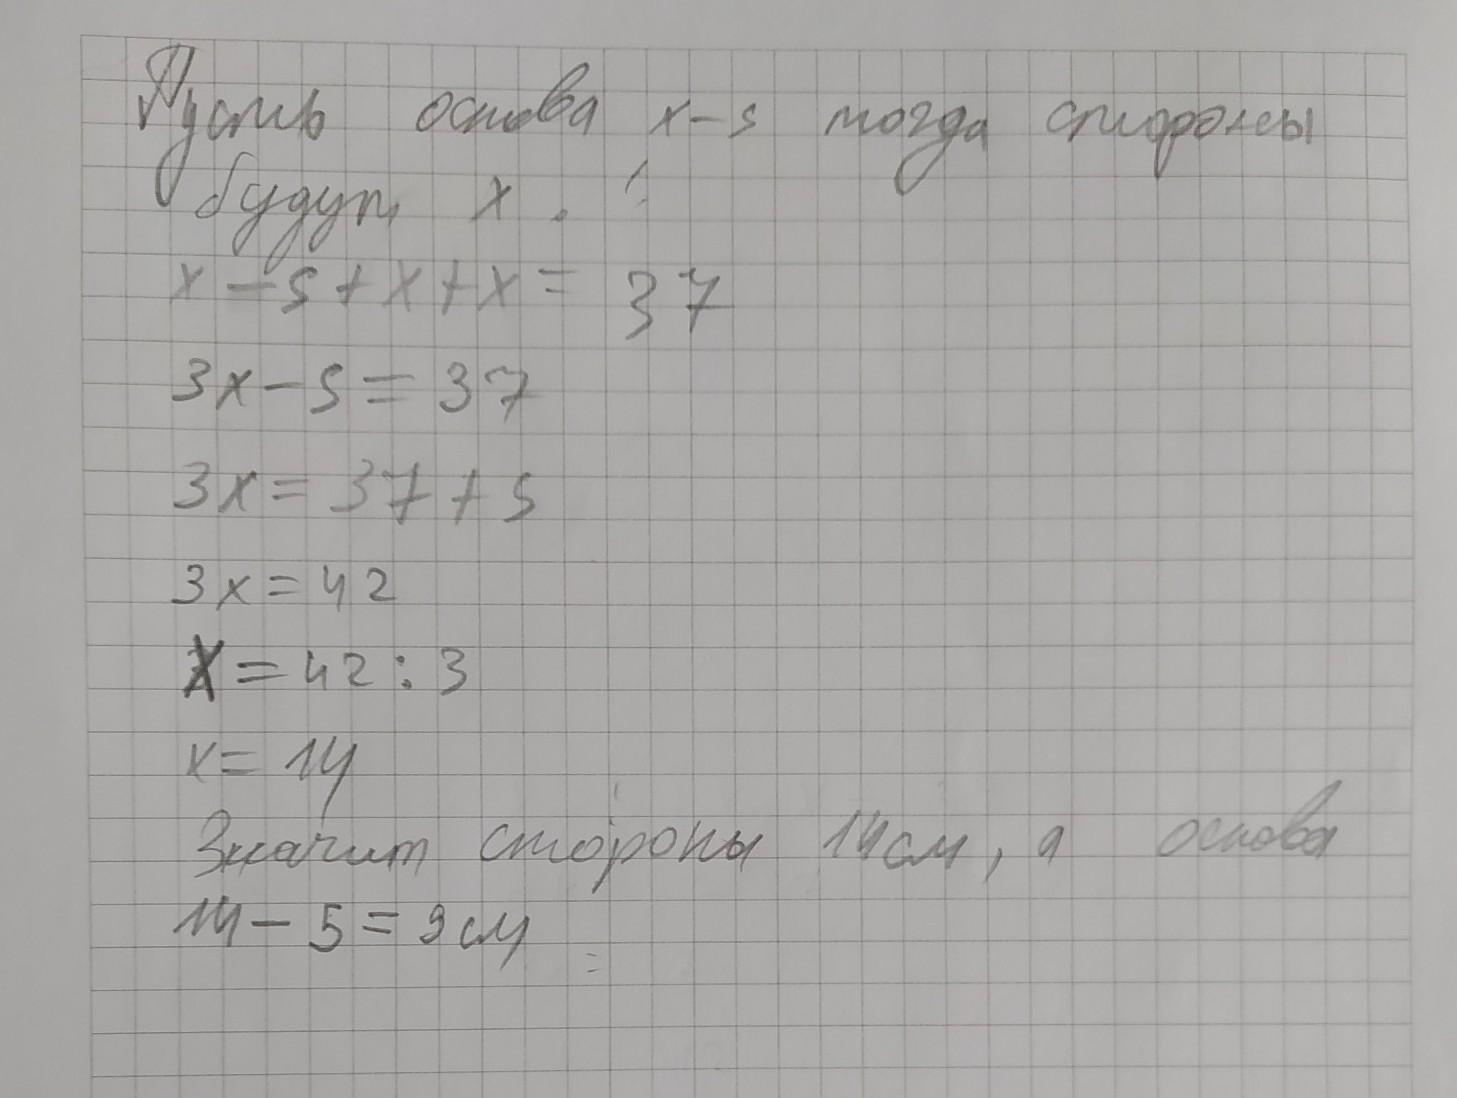 Пусть основа x-5 тогда стороны
будут x.
x-5+x+x= 37
3x-5=37
3x=37+5
3x=42
x=42:3
x=14
Значит стороны 14см, а основа
14-5=9см